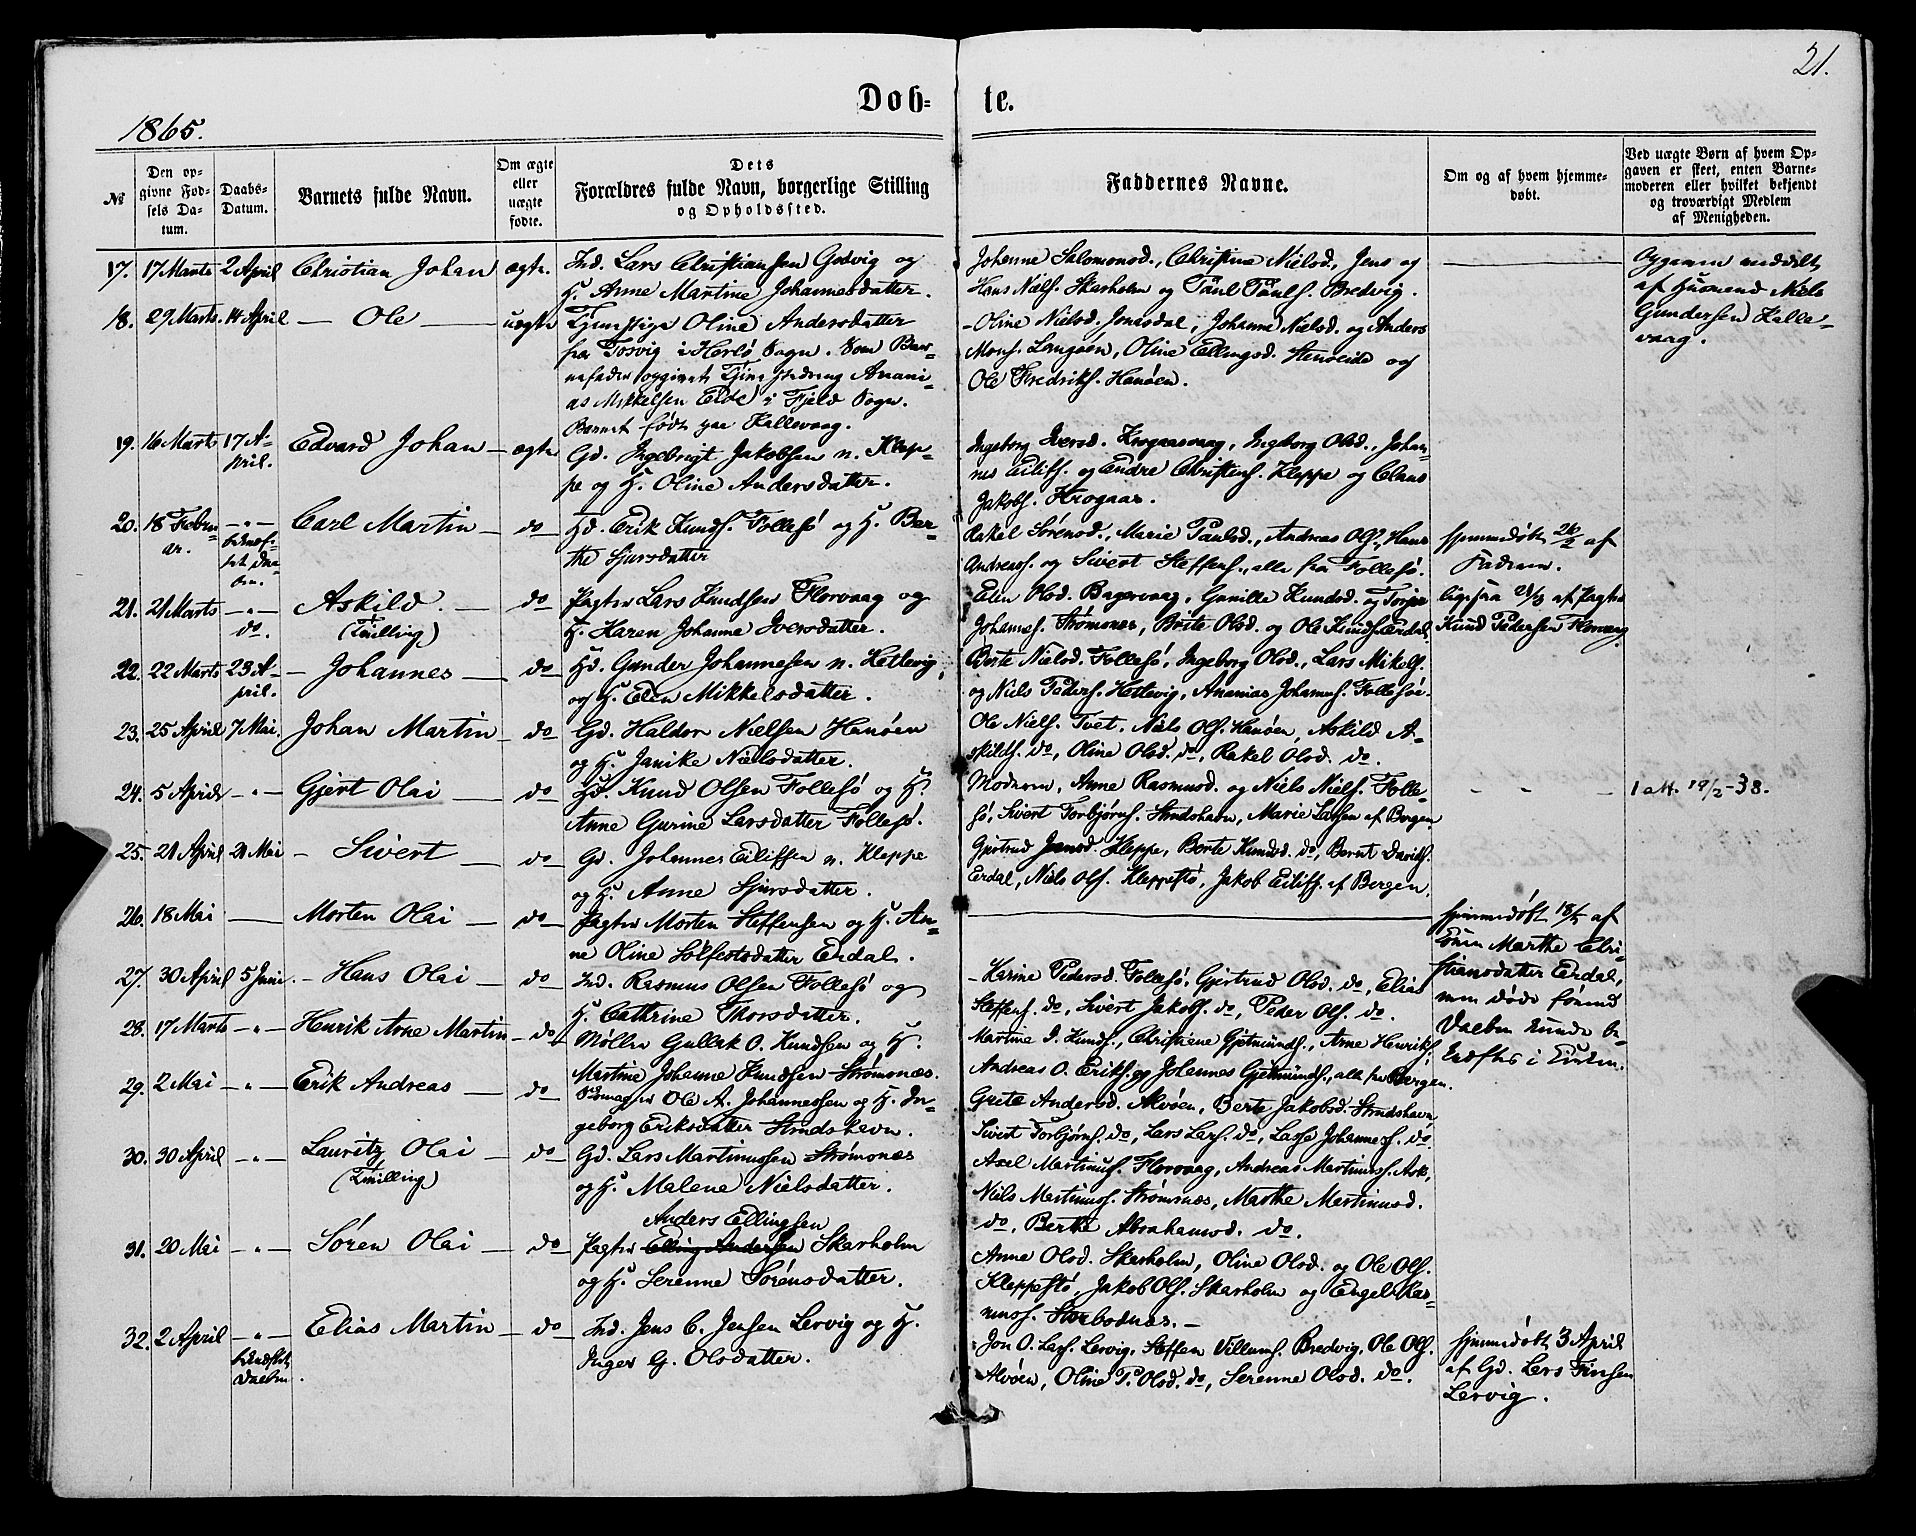 21.
Døb- te.
1865.
№
Den op-
givne Fød-
sels Da-
tum.
Daabs-
Datum.
Barnets fulde Navn.
Om ægte
eller
uægte
fødte.
Dets
Forældres fulde Navn, borgerlige Stilling
og Opholdssted.
Faddernes Navne.
Om og af hvem hjemme-
døbt.
Ved uægte Børn af hvem Op-
gaven er skeet, enten Barne-
moderen eller hvilket bekjendt
og troværdigt Medlem
af Menigheden.
17. 17 Marts 2 April Christian Johan ægte Ind. Lars Christiansen Godvig og
H. Anne Martine Johannesdatter.
Johanne Salomonsd., Christina Nielsd., Jens og
Hans Niels. Skarholm og Paul Pauls. Bredvig.
18. 29 Marts 14 April — Ole — uægte Tjenstpige Oline Andersdatter
fra Tosvig i Herlø Sogn. Som Bar-
nefader opgivet Tjenestedreng Anani-
as Mikkelsen Eide i Fjeld Sogn.
Barnet født paa Kallevaag.
- Oline Nielsd. Jonasdal, Johanne Nielsd. og Anders
Mons. Langøen, Oline Ellingsd. Steneide og
Ole Fredriks. Hanøen.
Opgaven meddelt
af Husmand Niels
Gundersen Kalle-
vaag.
19. 16 Marts 17 A-
pril. Edvard Johan — ægte Gd. Ingebrigt Jakobsen n. Klep-
pe og H. Oline Andersdatter.
Ingeborg Iversd. Krogaasvaag, Ingeborg Olsd., Johan-
nes Eilifs. og Endre Christens. Kleppe og Claus
Jakobs. Krogaas.
20. 18 Febru-
ar. —„— bekræf-
tet Daa-
ben. Carl Martin — do Hd. Erik Knuds. Follesø og H. Bar-
the Sjursdatter
Rakel Sørensd., Marie Paulsd., Andreas Ols., Hans
Andreas. og Sivert Steffens., alle fra Follesø.
hjemmedøbt 26/2 af
Faderen.
21. 21 Marts —„—
do. Askild. — do
(Tvilling)
Pagter Lars Knudsen Florvaag og
H. Karen Johanne Iversdatter.
Elen Olsd. Bagervaag, Gunille Knudsd. og Torjer
Johannes. Strømsnes, Birte Olsd. og Ole Knuds. Erdal.
ligesaa 21/3 af Pagter
Knud Pedersen Florvaag
22. 22 Marts 23 A-
pril. — Johannes — do Hd. Gunder Johannesen n. Hetlevig,
og H. Elen Mikkelsdatter.
Børte Nielsd. Follesø, Ingeborg Olsd., Lars Mikels.
og Niels Peders. Hetlevig, Ananias Johannes. Follesø.
23. 25 April 7 Mai Johan Martin — do Gd. Haldor Nielsen Hanøen
og H. Janike Nielsdatter.
Ole Niels. Tvet. Niels Ols. Hanøen, Askild A-
skilds. do, Oline Olsd. do, Rakel Olsd. do.
24. 5 April —„— Gjert Olai — do Hd. Knud Olsen Follesø og H.
Anne Gurine Larsdatter Follesø.
Moderen, Anne Rasmusd. og Niels Niels. Folle-
sø, Sivert Torbjørns. Strudshavn, Marie Larsen af Bergen.
1 att. 19/2-38.
25. 21 April 21 Mai — Sivert — do Gd. Johannes Eilifsen n. Kleppe
og H. Anne Sjursdatter.
Gjertrud Jensd. Kleppe, Borte Knudsd. do, Bernt Davids.
Erdal, Niels Ols. Kleppestø, Jakob Eilifs. af Bergen.
26. 18 Mai — Morten Olai — do Pagter Morten Steffensen og H. An-
ne Oline Solfestsdatter Erdal.
hjemmedøbt 18/5 af
Konen Marthe Chri-
stiansdatter Erdal,
men døde førend
Daaben kunde be-
kræftes i Kirken.
27. 30 April 5 Juni — Hans Olai — do Ind. Rasmus Olsen Follesø og
H. Cathrine Thorsdatter.
- Karine Pedersd. Follesø, Gjertrud Olsd. do, Elias
Steffens. do, Sivert Jakobs. do, Peder Ols. do.
28. 17 Marts —„— Henrik Arne Martin — do Møller Gullak O. Knudsen og H.
Martine Johanne Knudsen Strømsnæs.
Martine J. Knuds., Christiene Gjetmunds., Arne Henriks.,
Andreas O. Eriks. og Johannes Gjetmunds., alle fra Bergen.
29. 2 Mai —„— Erik Andreas — do Skomager Ole A. Johannessen og H. In-
geborg Eriksdatter Strudshavn.
Grete Andersd. Alvøen, Berte Jakobsd. Strudshavn
Sivert Torbjørns. do, Lars Lars. do, Lasse Johannes. do
30. 30 April —„— Lauritz Olai — do
(Tvilling)
Gd. Lars Martinussen Strømsnæs
og H. Malene Nielsdatter.
Axel Martinus. Florvaag, Andreas Martinus. Ask,
Niels Martinus. Strømsnæs, Marthe Martinusd.
do, Berthe Abrahamsd. do.
31. 20 Mai —„— Søren Olai — do Anders Ellingsen
Pagter Elling Andersen Skarholm
og H. Serenne Sørensdatter.
Anne Olsd. Skarholm, Oline Olsd. og Ole Ols.
Kleppestø, Jakob Ols. Skarholm og Engel Ras-
muss. Storbodnes. —
32. 2 April —„—
bekræftet
Daaben. Elias Martin — do Ind. Jens C. Jensen Lervig og H.
Inger G. Olsdatter.
Jon O. Lars. Lervig, Steffen Villums. Bredvig, Ole Ols.
Alvøen, Oline P. Olsd. do, Serenne Olsd. do.
hjemmedøbt 3 April
af Gd. Lars Finsen
Lervig.